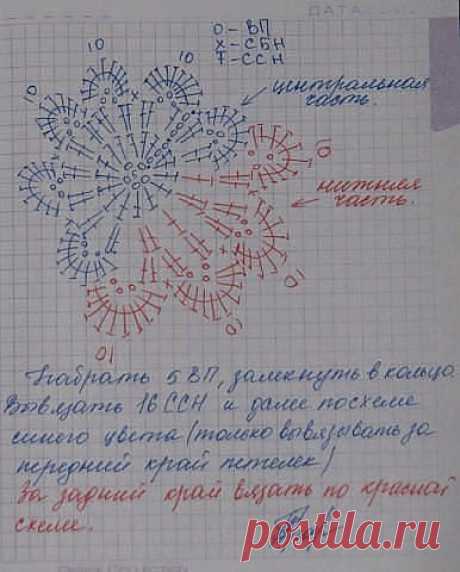 ДАТА
О - ВП
Х - СБН
Т - ССН
10
10
10
центральная
часть.
б
нижняя
часть.
10
10
10
Набрать 5 ВП, замкнуть в кольцо.
Вывязать 16 ССН и далее по схеме
синего цвета (только вывязывать за
передний край петелек)
За задний край вязать по красной
схеме.
postila.ru